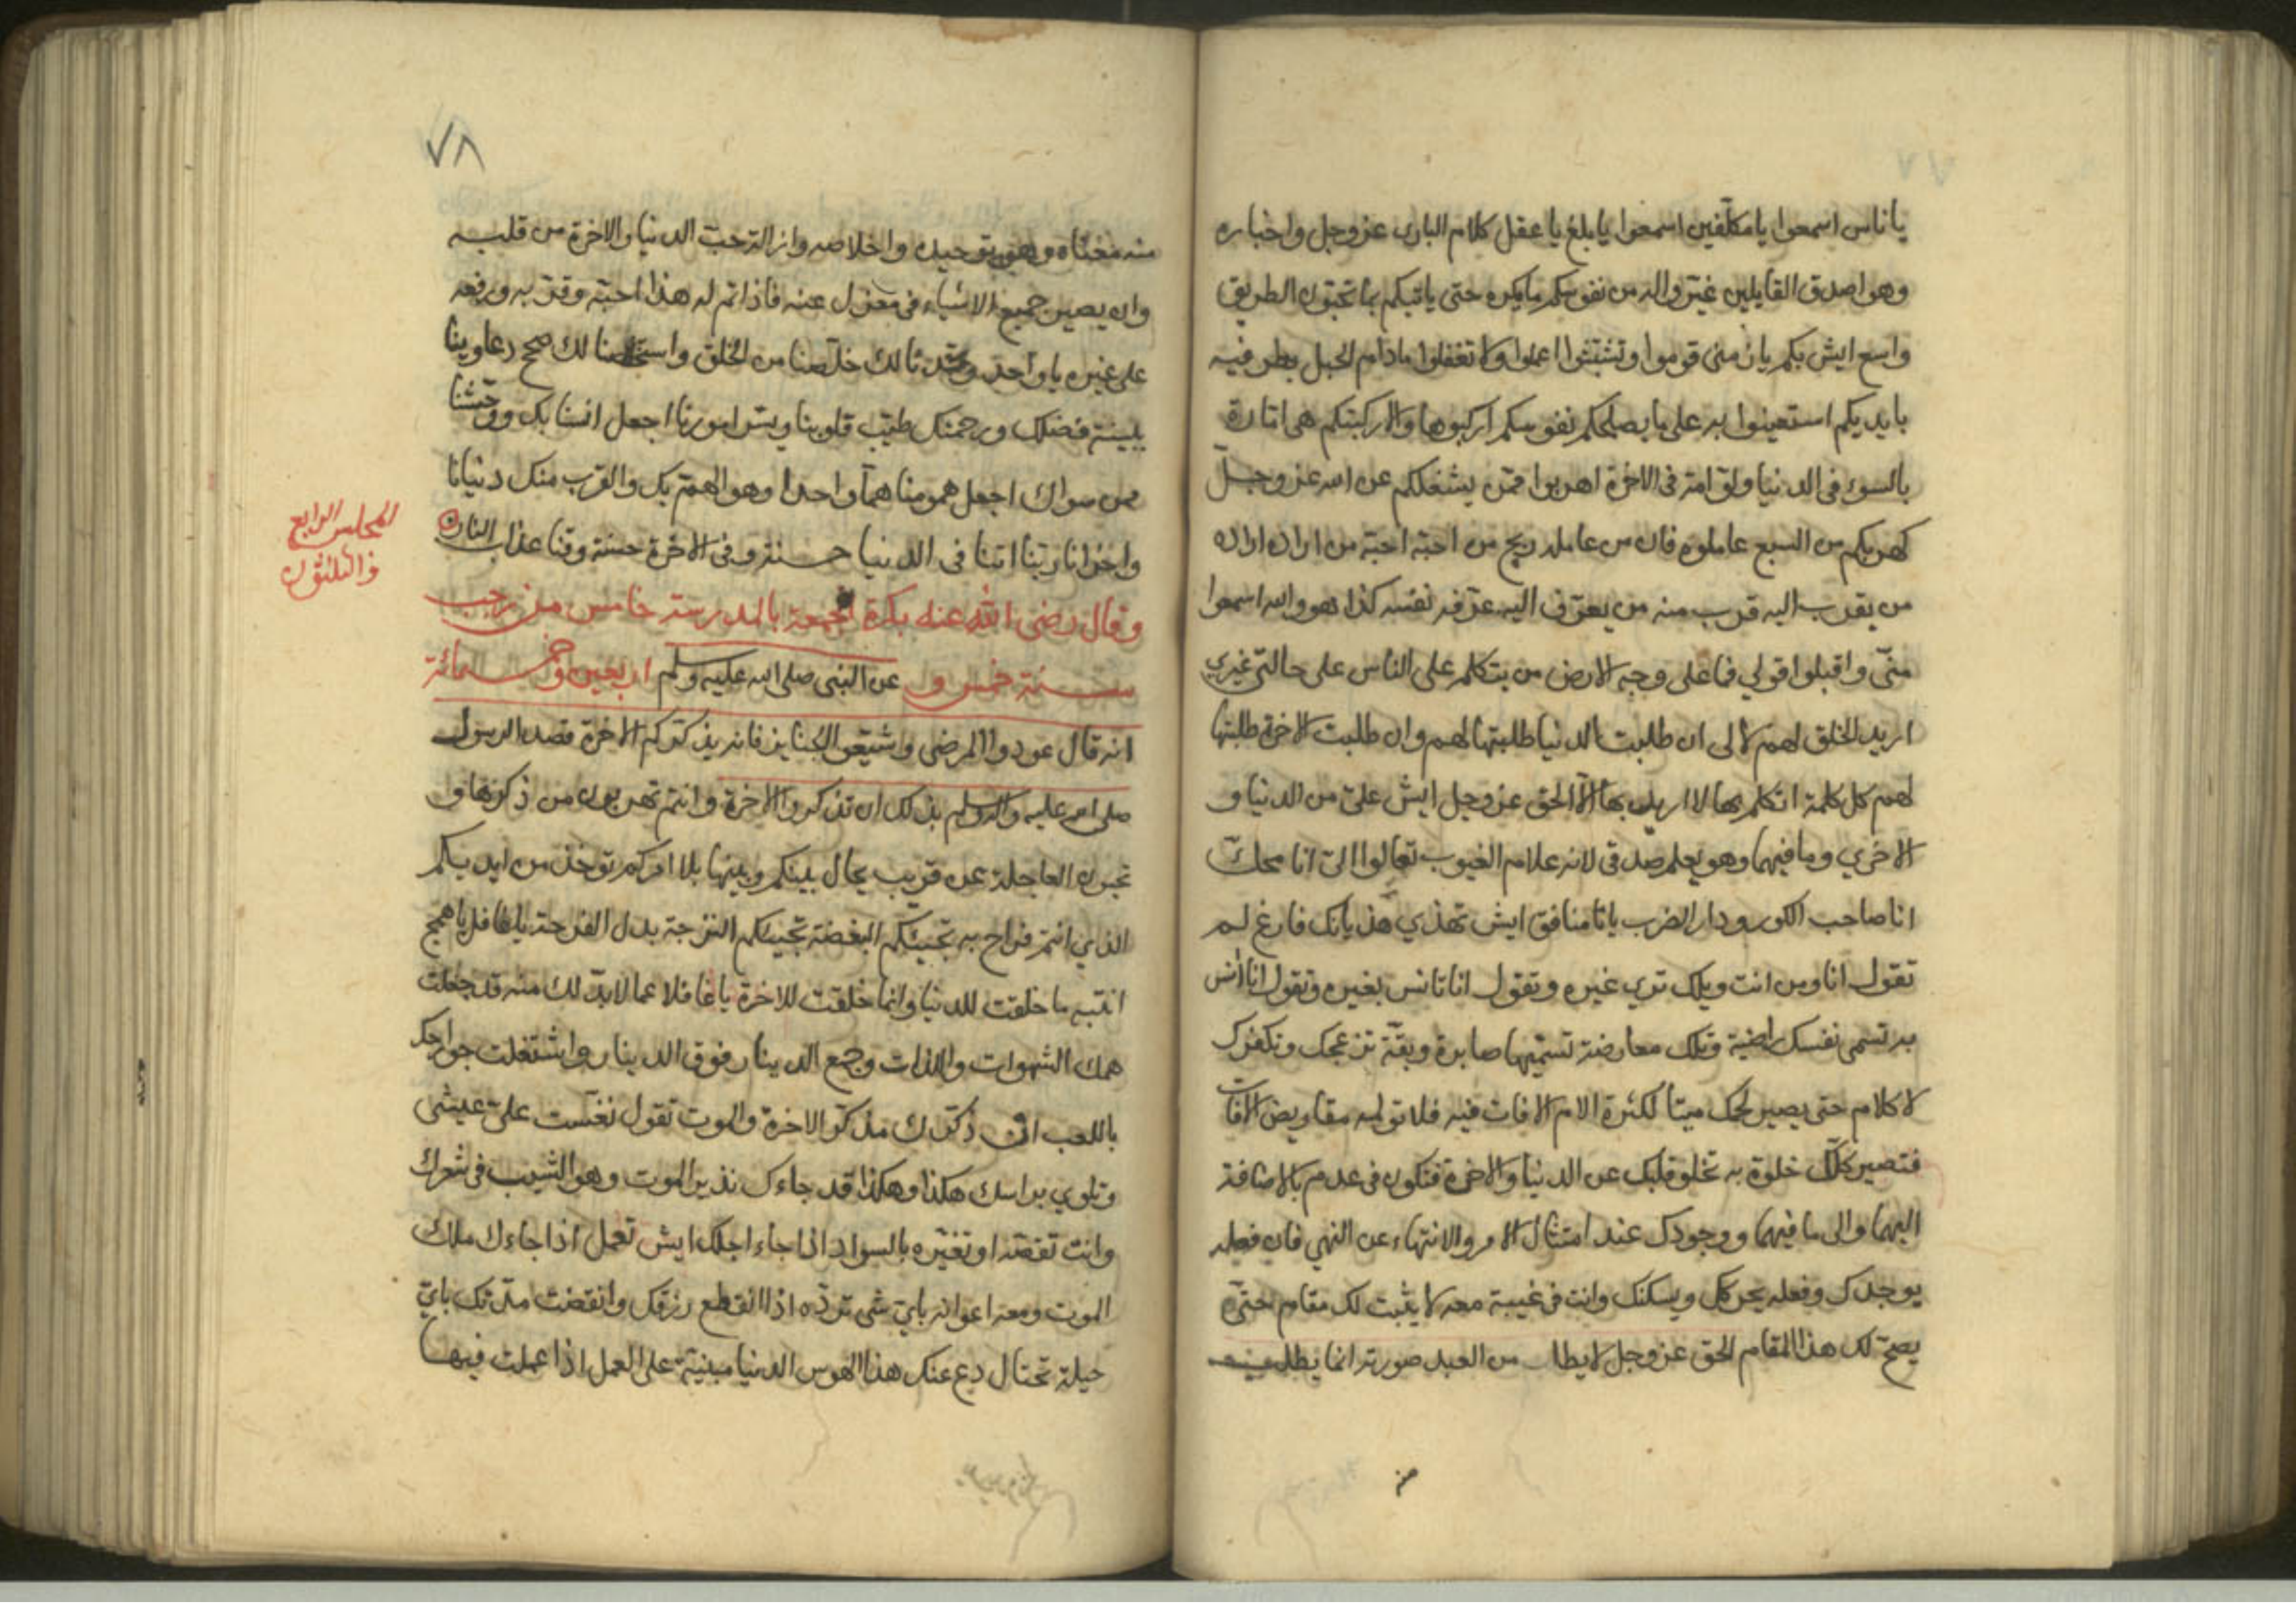 يا ناس اسمعوا يا مكلّفين اسمعوا يا بلغ يا عقل كلام البارى عز وجل واخباره
وهو اصدق القايلين غيّروا له من نفوسكم ما يكره حتى ياتيكم بما تحبّون الطريق
واسع ايش بكم يا زمنى قوموا وتشبثوا اعملوا ولا تغفلوا مادام الحبل بطرفيه
بايديكم استعينوا به على ما يصلحكم نفوسكم اركبوها والا ركبتكم هى امّارة
بالسوء فى الدنيا ولوّامة فى الاخرة اهربوا ممّن يشغلكم عن الله عز وجل
كهربكم من السبع عاملوه فان من عامله ربح من احبّه احبّه من اراده اراده
من يقرب اليه قرب منه من يعرّف اليه عرّفه نفسه كذا هو والله اسمعوا
منّى واقبلوا قولي فما على وجه الارض من يتكلم على الناس على حالتى غيري
اريد الخلق لهم لا لى ان طلبت الدنيا طلبتها لهم وان طلبت الاخرة طلبتها
لهم كل كلمة اتكلم بها لا اريد بها الّا الحق عز وجل ايش علىّ من الدنيا و
الاخري وما فيهما وهو يعلم صدقى لانه علام الغيوب تعالوا الىّ انا محكّ
انا صاحب الكور ودار الضرب يانا منافق ايش تهذي هذيانك فارغ لم
تقول انا ومن انت ويلك تري غيره وتقول انا تانس بغيره وتقول انا آنس
به تسمى نفسك راضية وتلك معارضة تسمّيها صابرة وبقّة تزعجك وتكفرك
لا كلام حتى يصير لحمك ميتا لكثرة الام الافات فيه فلا تولمه مقاريض الافات
فتصير كلّك خلوة به تخلو قلبك عن الدنيا والاخرة فتكون فى عدم بالاضافة
اليهما والى ما فيهما ووجودك عند امتثال الامر والانتهاء عن النهي فان فعله
يوجدك وفعله يحركك ويسكنك وانت فى غيبة معه لا يثبت لك مقام حتى
يصحّ لك هذا المقام الحق عز وجل لا يطلب من العبد صورته انما يطلب
٧٨
منه معناه وهو توحيده واخلاصه وازالة حبّ الدنيا والاخرة من قلبه
وان يصير جميع الاشياء فى معزل عنه فاذا تم له هذا احبّه وقرّبه ورفعه
على غيره يا واحد وحّدنا لك خلّصنا من الخلق واستخلصنا لك صحح دعاوينا
ببينة فضلك ورحمتك طيّب قلوبنا ويسّر امورنا اجعل انسنا بك ووحشتنا
ممن سواك اجعل همومنا همّا واحدا وهو الهمّ بك والقرب منك دنيانا
واخرانا ربّنا اتنا فى الدنيا حسنة وفى الاخرة حسنة وقنا عذاب النار
المجلس الرابع
والثلثون
وقال رضى الله عنه بكرة الجمعة بالمدرسة خامس من رجب
سنة خمس و اربعين وخمسمائة عن النبى صلى الله عليه وسلم
انه قال عودوا المرضى وشيّعوا الجنايز فانه يذكّركم الاخرة قصد الرسول
صلى الله عليه واله وسلم بذلك ان تذكروا الاخرة وانتم تهربون من ذكرها و
تحبون العاجلة عن قريب يحال بينكم وبينها بلا امركم توخذ من ايديكم
الذي انتم فراح به تجيئكم البغضة تجيئكم الترحة بدل الفرحة يا غافل يا همج
انتبه ما خلقت للدنيا وانما خلقت للاخرة يا غافلا عما لابدّ لك منه قد جعلت
همك الشهوات واللذات وجمع الدينار فوق الدينار واشتغلت جوارحك
باللعب ان ذكّرك مذكّر الاخرة والموت تقول نغّست علىّ عيشى
وتلوي براسك هكذا وهكذا قد جاءك نذير الموت وهو الشيب فى شعرك
وانت تقصّه او تغيّره بالسواد اذا جاء اجلك ايش تعمل اذا جاءك ملك
الموت ومعه اعوانه بايّ شى تردّه اذا انقطع رزقك وانقضت مدّتك بايّ
حيلة تحتال دع عنك هذا الهوس الدنيا مبنيّة على العمل اذا عملت فيها